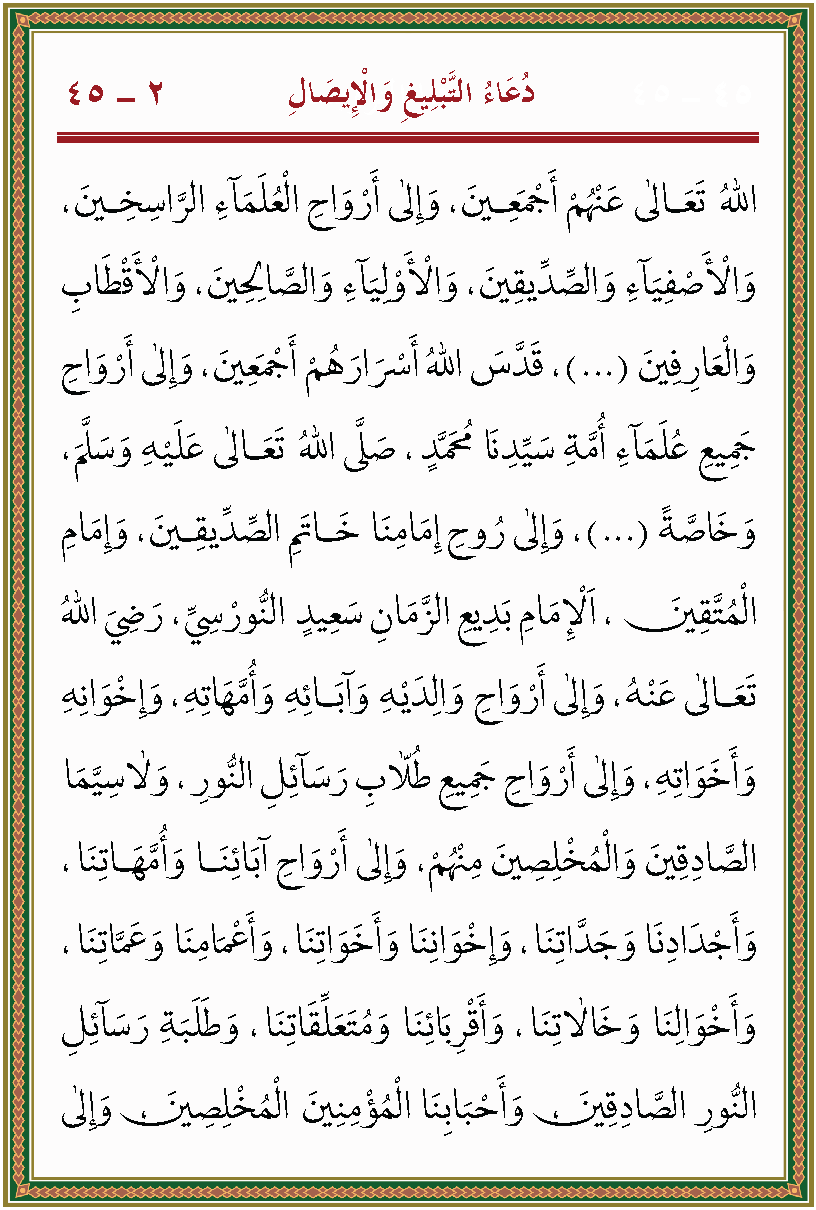 دُعَاءُ التَّبْلِيغِ وَالْإِيصَالِ ٢ ـ ٤٥
اللهُ تَعَالٰى عَنْهُمْ أَجْمَعِينَ، وَإِلٰى أَرْوَاحِ الْعُلَمَآءِ الرَّاسِخِينَ،
وَالْأَصْفِيَآءِ وَالصِّدِّيقِينَ، وَالْأَوْلِيَآءِ وَالصَّالِحِينَ، وَالْأَقْطَابِ
وَالْعَارِفِينَ (...)، قَدَّسَ اللهُ أَسْرَارَهُمْ أَجْمَعِينَ، وَإِلٰى أَرْوَاحِ
جَمِيعِ عُلَمَآءِ أُمَّةِ سَيِّدِنَا مُحَمَّدٍ، صَلَّى اللهُ تَعَالٰى عَلَيْهِ وَسَلَّمَ،
وَخَاصَّةً (...)، وَإِلٰى رُوحِ إِمَامِنَا خَاتَمِ الصِّدِّيقِينَ، وَإِمَامِ
الْمُتَّقِينَ، اَلْإِمَامِ بَدِيعِ الزَّمَانِ سَعِيدٍ النُّورْسِيِّ، رَضِيَ اللهُ
تَعَالٰى عَنْهُ، وَإِلٰى أَرْوَاحِ وَالِدَيْهِ وَآبَائِهِ وَأُمَّهَاتِهِ، وَإِخْوَانِهِ
وَأَخَوَاتِهِ، وَإِلٰى أَرْوَاحِ جَمِيعِ طُلَّابِ رَسَآئِلِ النُّورِ، وَلَاسِيَّمَا
الصَّادِقِينَ وَالْمُخْلِصِينَ مِنْهُمْ، وَإِلٰى أَرْوَاحِ آبَائِنَا وَأُمَّهَاتِنَا،
وَأَجْدَادِنَا وَجَدَّاتِنَا، وَإِخْوَانِنَا وَأَخَوَاتِنَا، وَأَعْمَامِنَا وَعَمَّاتِنَا،
وَأَخْوَالِنَا وَخَالَاتِنَا، وَأَقْرِبَائِنَا وَمُتَعَلِّقَاتِنَا، وَطَلَبَةِ رَسَآئِلِ
النُّورِ الصَّادِقِينَ، وَأَحْبَابِنَا الْمُؤْمِنِينَ الْمُخْلِصِينَ، وَإِلٰى